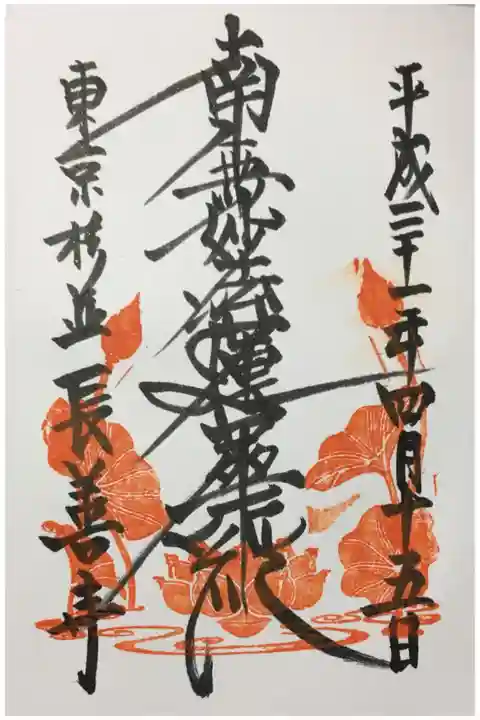 平成三十一年四月十五日
南無妙法蓮華経
東京杉並 長善寺